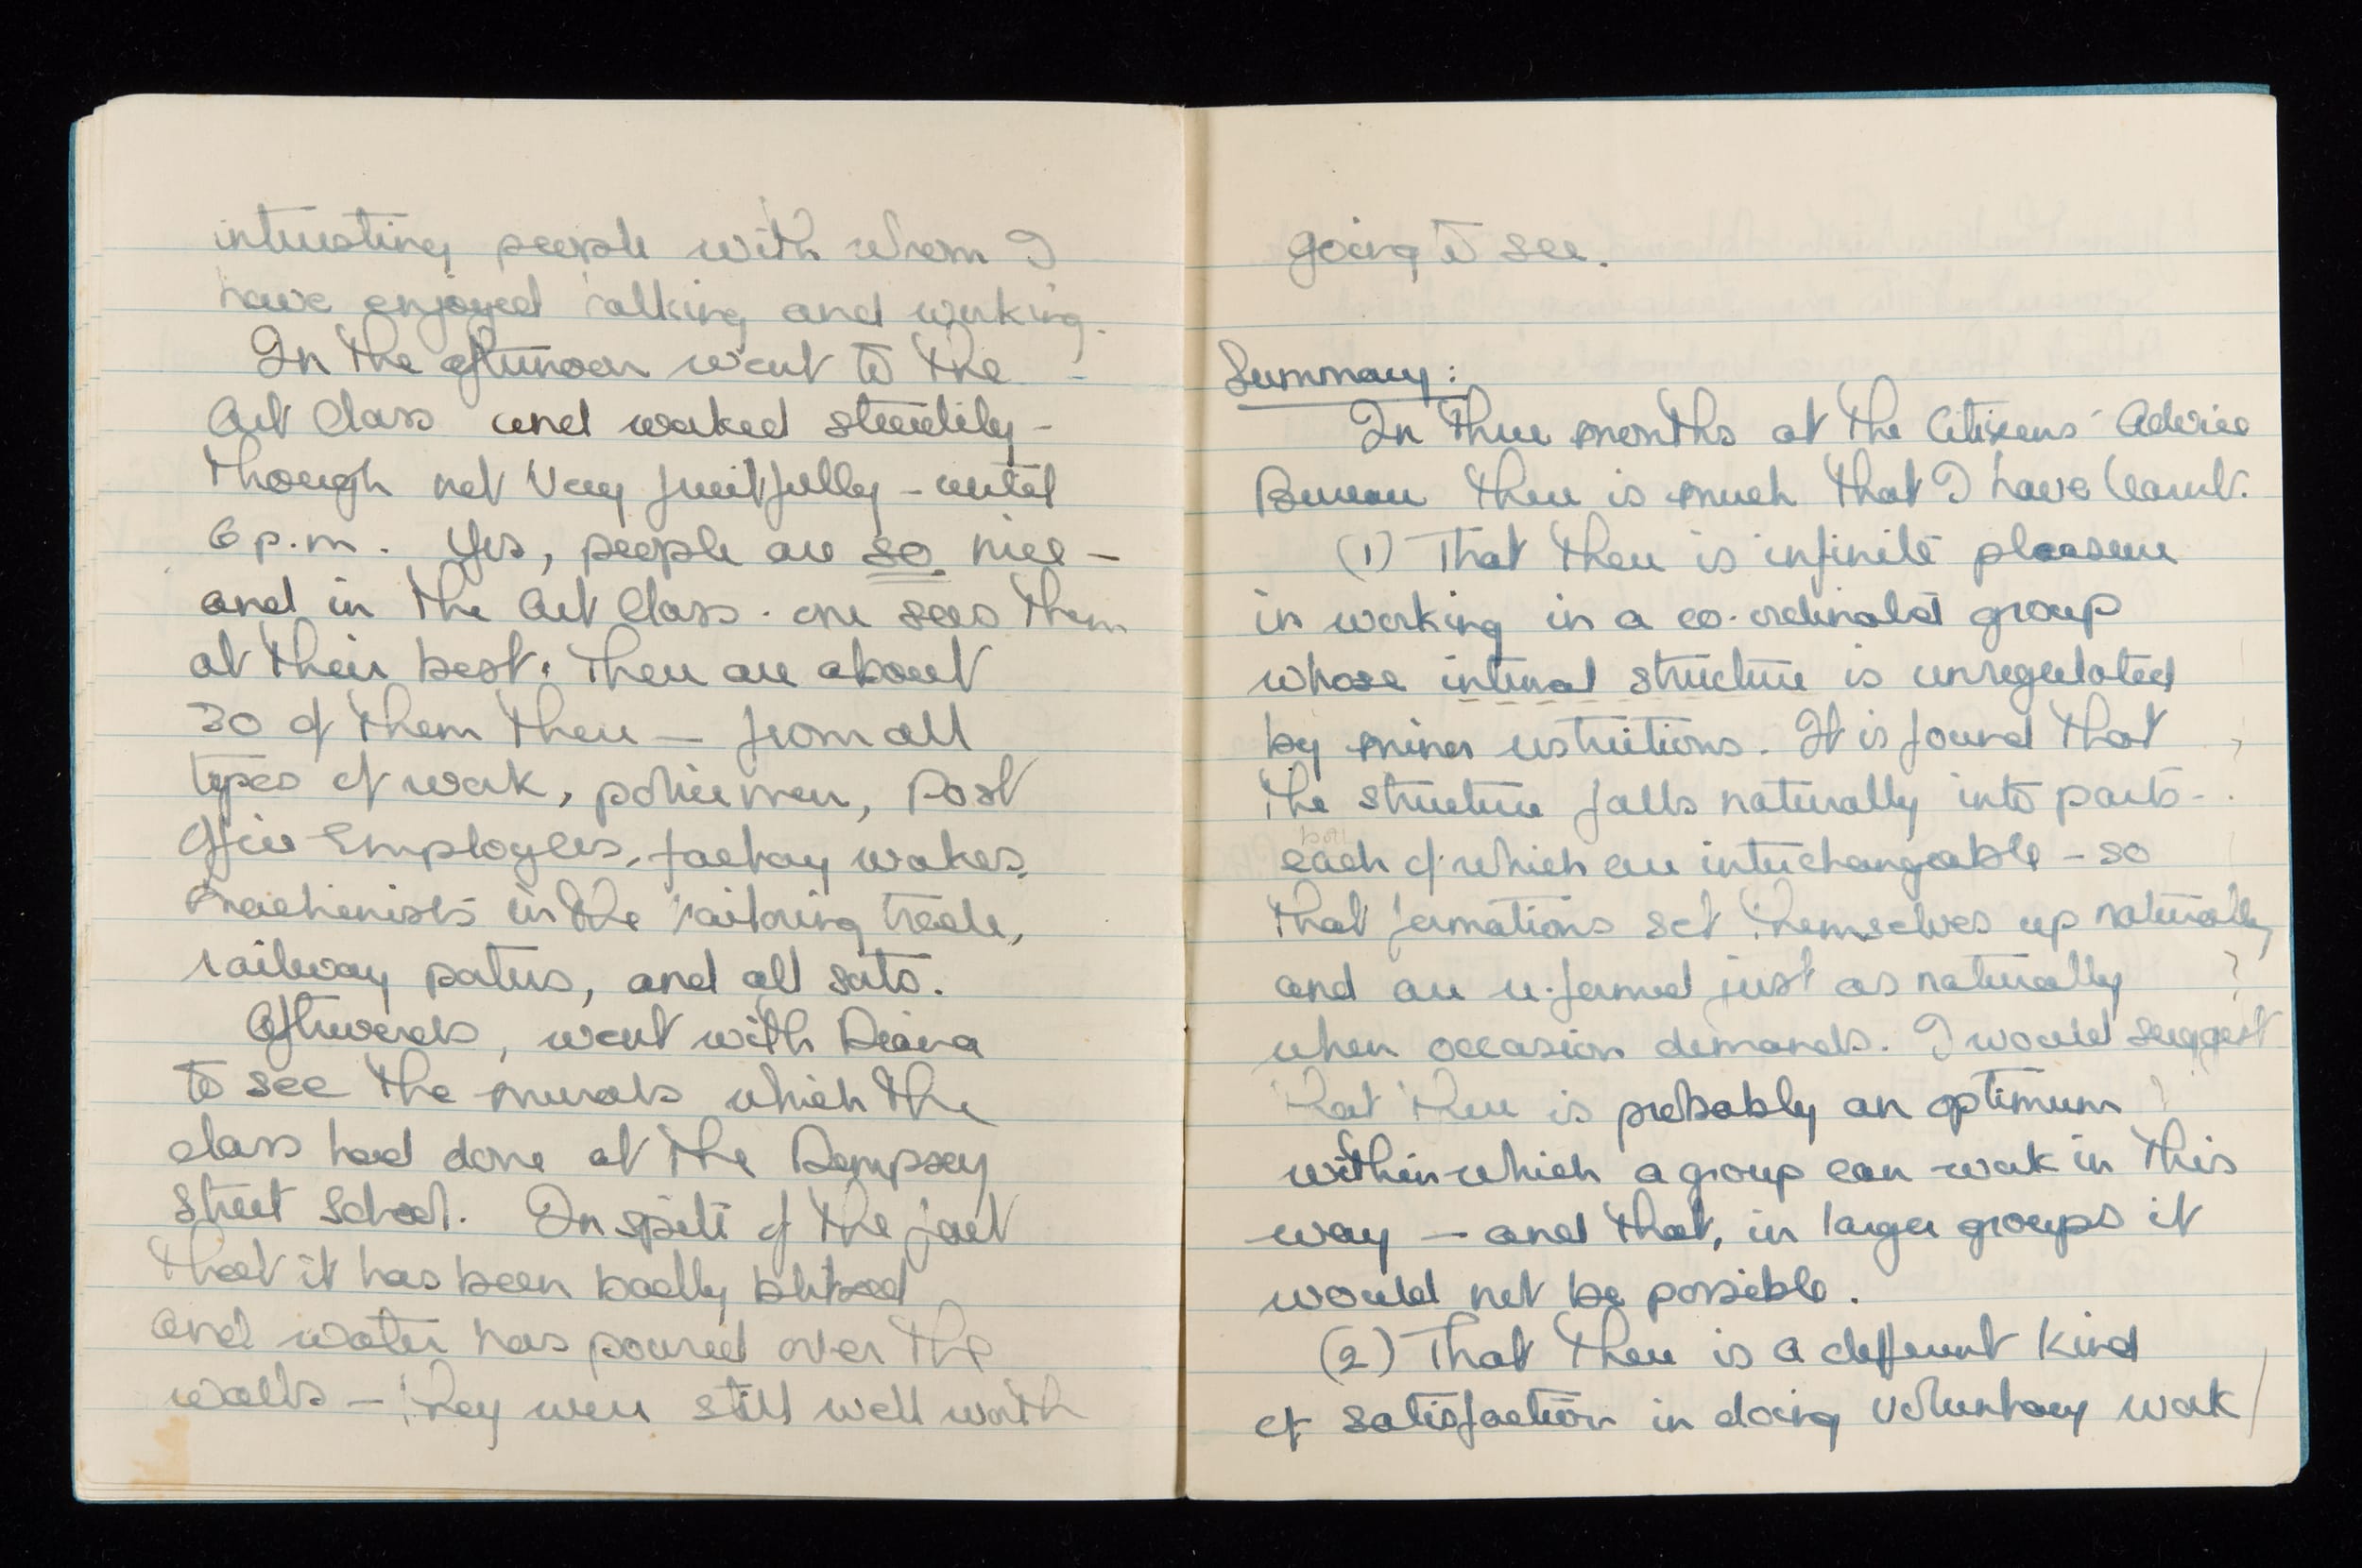 interesting people with whom I
have enjoyed talking and working.
In the afternoon went to the
Art Class and worked steadily -
though not very fruitfully - until
6 p.m. Yes, people are so nice -
and in the Art Class one sees them
at their best. There are about
30 of them there — from all
types of work, policemen, Post
Office Employees, factory workers,
machinists in the tailoring trade,
railway porters, and all sorts.
Afterwards, went with Diana
to see the murals which the
class had done at the Dempsey
Street School. In spite of the fact
that it has been badly blitzed
and water has poured over the
walls — they were still well worth
going to see.
Summary:
In three months at the Citizens' Advice
Bureau there is much that I have learnt.
(1) That there is infinite pleasure
in working in a co-ordinated group
whose internal structure is unregulated
by minor restrictions. It is found that
the structure falls naturally into parts -
each of which are interchangeable - so
that formations set themselves up naturally
and are re-formed just as naturally
when occasion demands. I would suggest
that there is probably an optimum
within which a group can work in this
way — and that, in larger groups it
would not be possible.
(2) That there is a different kind
of satisfaction in doing voluntary work